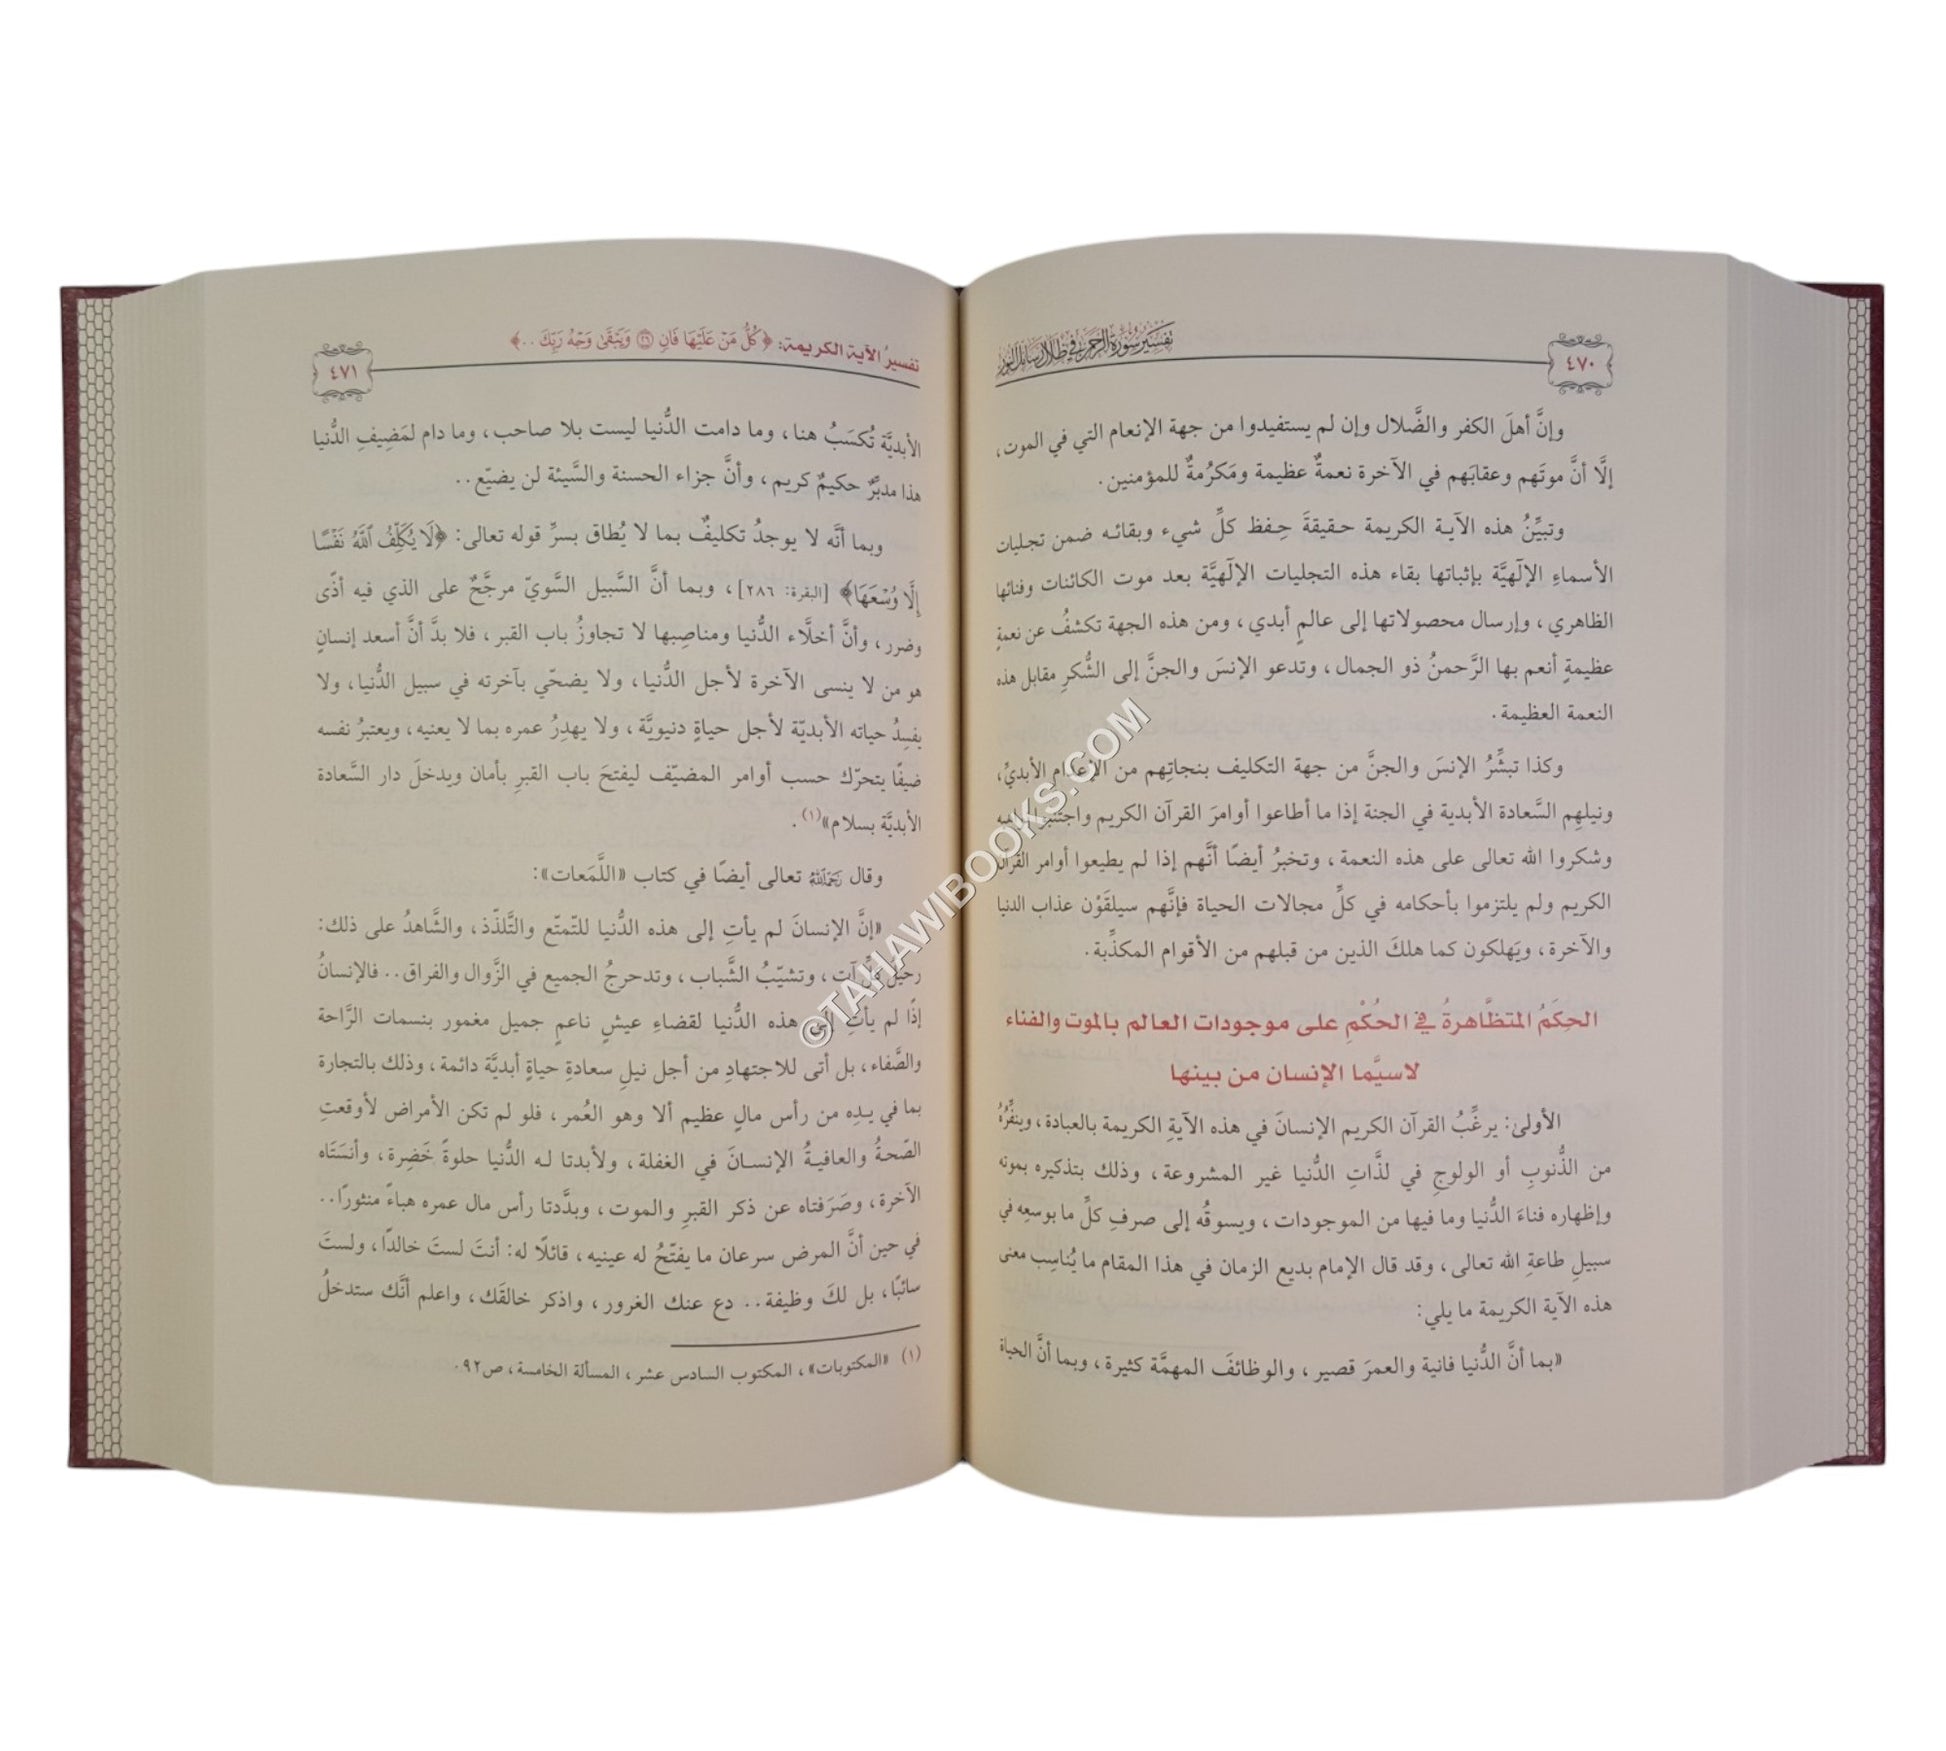 ٤٧٠
تفسير سورة الرحمن في ظلال رسائل النور
وإنَّ أهلَ الكفر والضَّلال وإن لم يستفيدوا من جهة الإنعام التي في الموت،
إلَّا أنَّ موتَهم وعقابَهم في الآخرة نعمةٌ عظيمة ومَكرُمةٌ للمؤمنين.
وتبيِّنُ هذه الآية الكريمة حقيقةَ حِفظ كلِّ شيء وبقائه ضمن تجليات
الأسماءِ الإلٰهيَّة بإثباتها بقاء هذه التجليات الإلٰهيَّة بعد موت الكائنات وفنائها
الظاهري، وإرسال محصولاتها إلى عالمٍ أبدي، ومن هذه الجهة تكشفُ عن نعمةٍ
عظيمةٍ أنعم بها الرَّحمنُ ذو الجمال، وتدعو الإنسَ والجنَّ إلى الشُّكرِ مقابل هذه
النعمة العظيمة.
وكذا تبشِّرُ الإنسَ والجنَّ من جهة التكليف بنجاتِهم من الإعدام الأبديِّ،
ونيلهِم السَّعادة الأبدية في الجنة إذا ما أطاعوا أوامرَ القرآن الكريم واجتنبوا
وشكروا الله تعالى على هذه النعمة، وتخبرُ أيضًا أنَّهم إذا لم يطيعوا أوامر القرآن
الكريم ولم يلتزموا بأحكامه في كلِّ مجالات الحياة فإنَّهم سيلقَوْن عذاب الدنيا
والآخرة، ويَهلكون كما هلكَ الذين من قبلهم من الأقوام المكذِّبة.
الحِكَمُ المتظَّاهرةُ في الحُكْمِ على موجودات العالم بالموت والفناء
لاسيَّما الإنسان من بينها
الأولى: يرغِّبُ القرآن الكريم الإنسانَ في هذه الآيةِ الكريمة بالعبادة، وينفِّرُهُ
من الذُّنوبِ أو الولوجِ في لذَّاتِ الدُّنيا غير المشروعة، وذلك بتذكيره بموته
وإظهاره فناءَ الدُّنيا وما فيها من الموجودات، ويسوقُه إلى صرفِ كلِّ ما بوسعِه في
سبيلِ طاعةِ الله تعالى، وقد قال الإمام بديع الزمان في هذا المقام ما يُناسِب معنى
هذه الآية الكريمة ما يلي:
«بما أنَّ الدُّنيا فانية والعمرَ قصير، والوظائفَ المهمَّة كثيرة، وبما أنَّ الحياة
تفسيرُ الآية الكريمة: ﴿كُلُّ مَنْ عَلَيْهَا فَانٍ ۝٢٦ وَيَبْقَىٰ وَجْهُ رَبِّكَ ..﴾
٤٧١
الأبديَّة تُكسَبُ هنا، وما دامت الدُّنيا ليست بلا صاحب، وما دام لمَضِيفِ الدُّنيا
هذا مدبِّرٌ حكيمٌ كريم، وأنَّ جزاء الحسنة والسَّيئة لن يضيّع..
وبما أنَّه لا يوجدُ تكليفٌ بما لا يُطاق بسرِّ قوله تعالى: ﴿لَا يُكَلِّفُ ٱللَّهُ نَفْسًا
إِلَّا وُسْعَهَا﴾ [البقرة: ٢٨٦]، وبما أنَّ السَّبيل السَّويّ مرجَّحٌ على الذي فيه أذًى
وضرر، وأنَّ أخلَّاء الدُّنيا ومناصِبها لا تجاوزُ باب القبر، فلا بدَّ أنَّ أسعد إنسانٍ
هو من لا ينسى الآخرة لأجل الدُّنيا، ولا يضحّي بآخرته في سبيل الدُّنيا، ولا
يفسِدُ حياته الأبديّة لأجل حياةٍ دنيويَّة، ولا يهدِرُ عمره بما لا يعنيه، ويعتبرُ نفسه
ضيفًا يتحرّك حسب أوامر المضيّف ليفتحَ باب القبرِ بأمان ويدخلَ دار السَّعادة
الأبديَّة بسلام»(١).
وقال رَحِمَهُ اللَّهُ تعالى أيضًا في كتاب «اللَّمَعات»:
«إنَّ الإنسانَ لم يأتِ إلى هذه الدُّنيا للتّمتّع والتَّلذّذ، والشَّاهدُ على ذلك:
رحيلُ كلِّ آتٍ، وتشيّبُ الشَّباب، وتدحرجُ الجميع في الزَّوال والفراق.. فالإنسانُ
إذًا لم يأتِ إلى هذه الدُّنيا لقضاءِ عيشٍ ناعمٍ جميل مغمور بنسمات الرَّاحة
والصَّفاء، بل أتى للاجتهادِ من أجل نيلِ سعادةِ حياةٍ أبديَّة دائمة، وذلك بالتجارة
بما في يدِه من رأس مالٍ عظيم ألا وهو العُمر، فلو لم تكن الأمراض لأوقعتِ
الصّحةُ والعافيةُ الإنسانَ في الغفلة، ولأبدتا له الدُّنيا حلوةً خَضِرة، وأنسَتَاه
الآخرة، وصَرَفتاه عن ذكر القبرِ والموت، وبدَّدتا رأس مال عمره هباءً منثورًا..
في حين أنَّ المرض سرعان ما يفتّحُ له عينيه، قائلًا له: أنتَ لستَ خالدًا، ولستَ
سائبًا، بل لكَ وظيفة.. دع عنك الغرور، واذكر خالقَك، واعلم أنَّك ستدخلُ
(١) «المكتوبات»، المكتوب السادس عشر، المسألة الخامسة، ص٩٢.
©TAHAWIBOOKS.COM